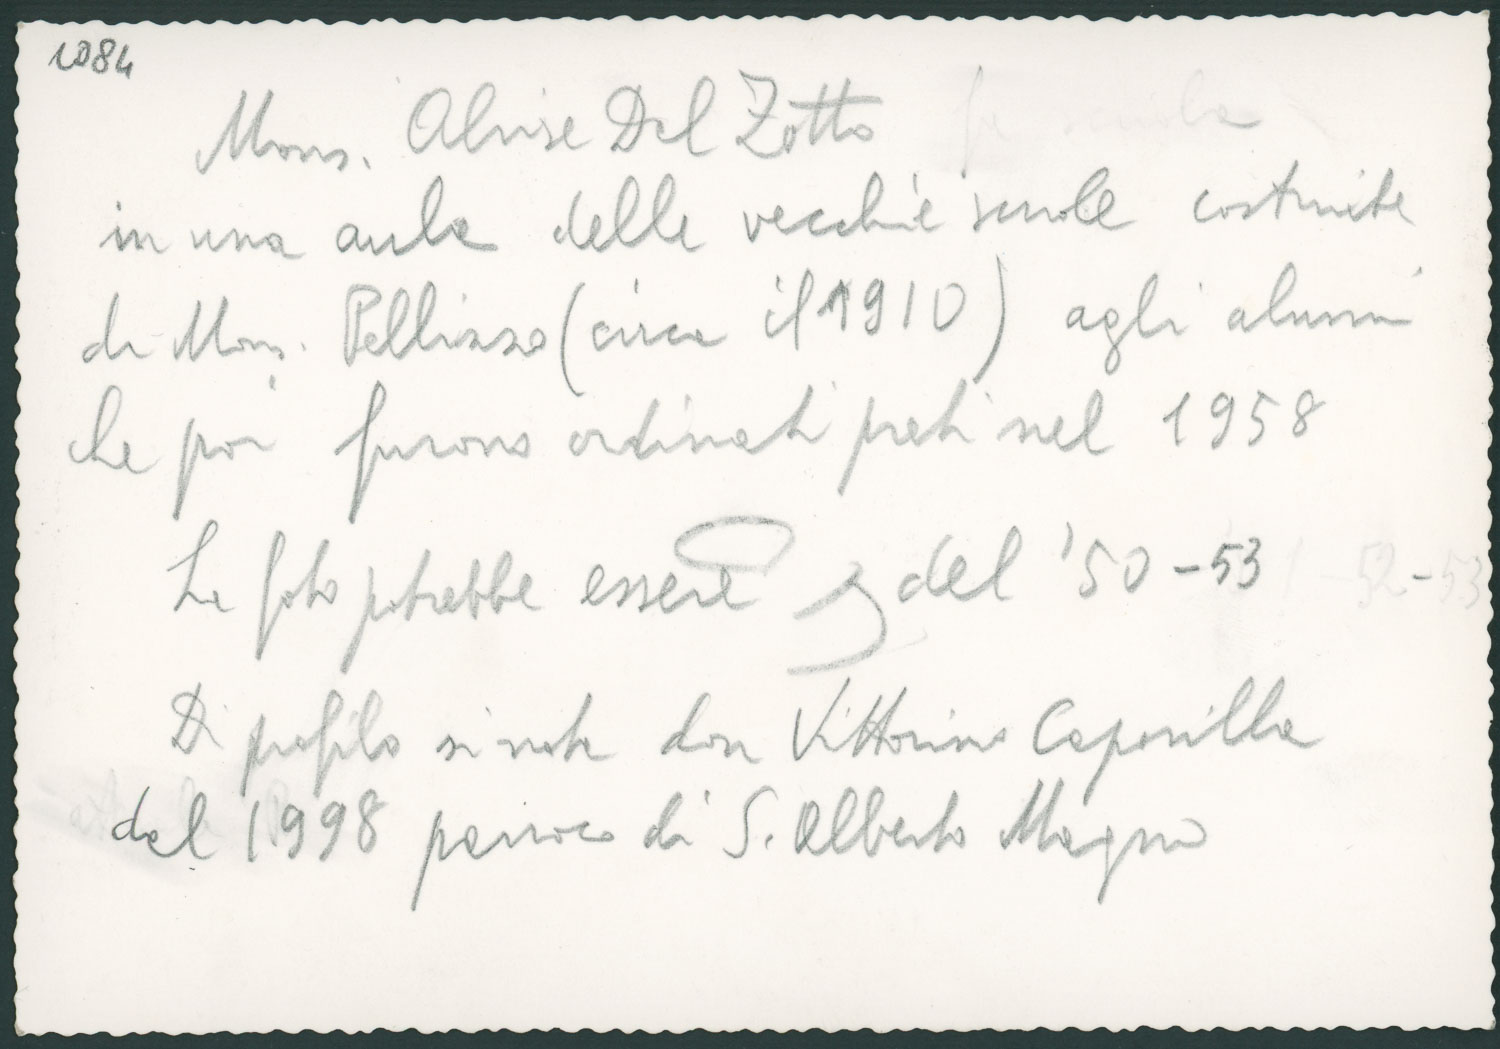 1084
Mons. Alvise Del Zotto
in una aula delle vecchie scuole costruite
da Mons. Pellizzo (circa il 1910) agli alunni
che poi furono ordinati preti nel 1958
La foto potrebbe essere del '50-53 52-53
Di profilo si nota don Vittorino
dal 1998 parroco di S. Alberto Magno